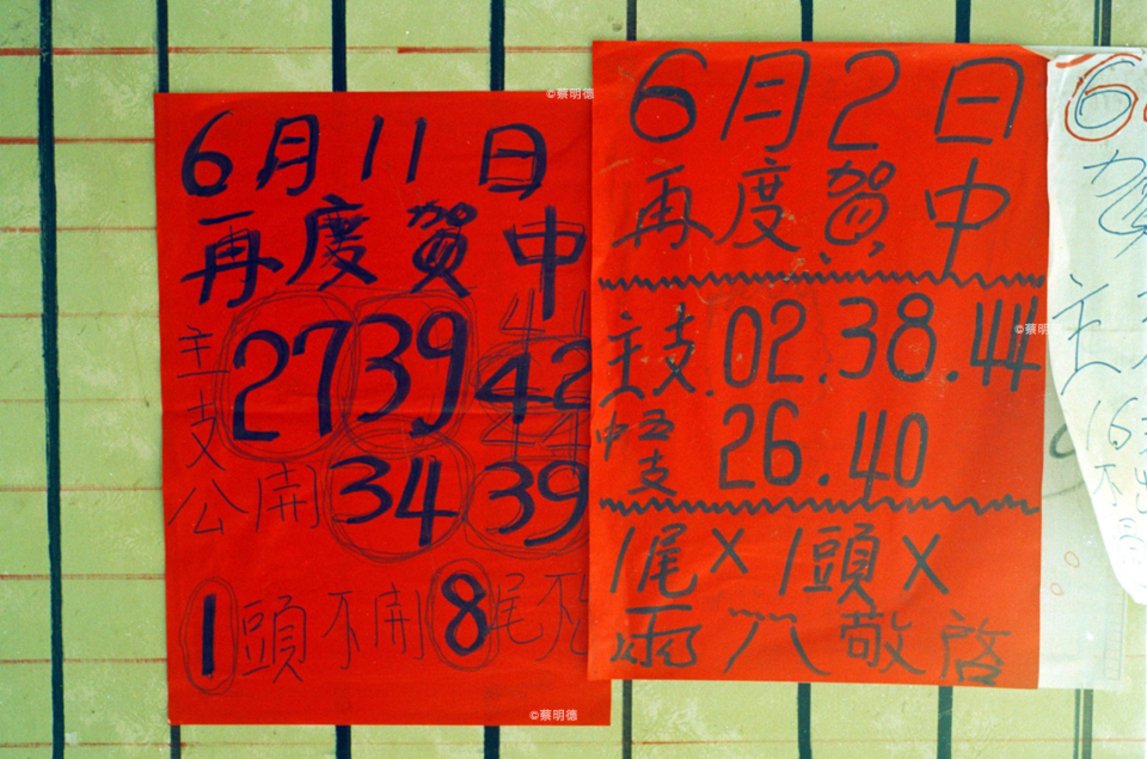 6月11日
再度賀中
主支 27 39 42
公開 34 39
1頭不開8尾不
6月2日
再度賀中
主支.02.38.44
中五支 26.40
1尾X 1頭X
雨 六 敬啓
6
賀
主
16
不
©蔡明德
©蔡明
©蔡明德